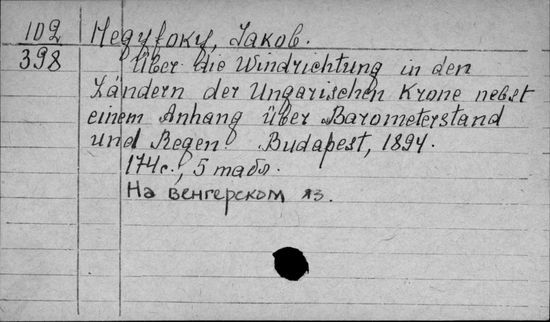 102
398
Hegyfoky, Jakob.
Über die Windrichtung in den
Ländern der Ungarischen Krone nebst
einem Anhang über Barometerstand
und Regen Budapest, 1894.
174с., 5 табл.
На венгерском яз.